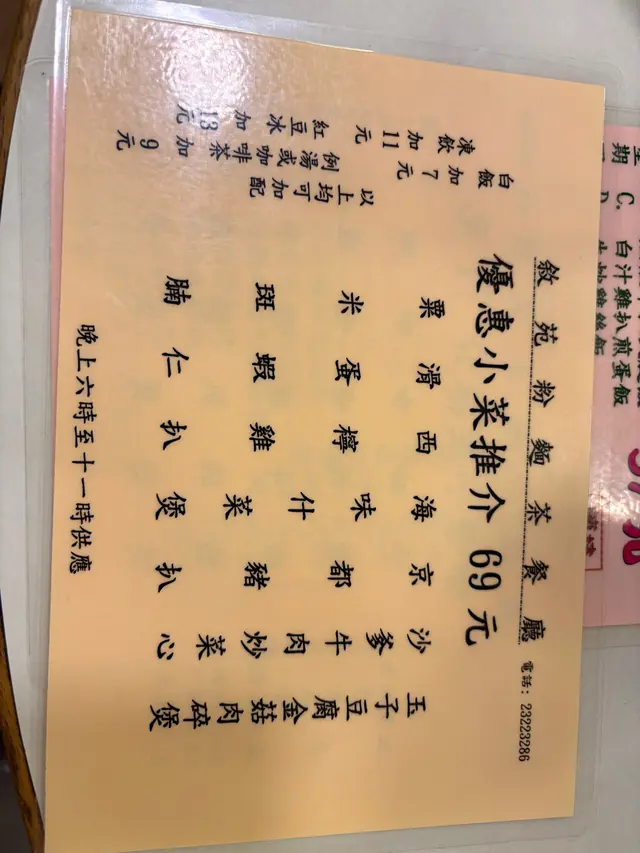 敘苑粉麵茶餐廳 電話: 23223286
優惠小菜推介 69元
玉子豆腐金菇肉碎煲
沙爹牛肉炒菜心
京都豬扒
海味什菜煲
西檸雞扒
滑蛋蝦仁
粟米斑腩
以上均可加配
白飯加7元
例湯或咖啡茶加9元
凍飲加11元
紅豆冰加13元
晚上六時至十一時供應
星期
C. 白汁雞扒煎蛋飯